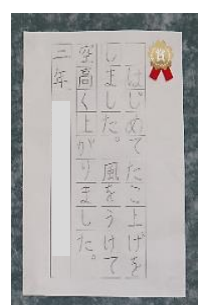 はじめてたこ上げを
しました。風をうけて
空高く上がりました。
二年